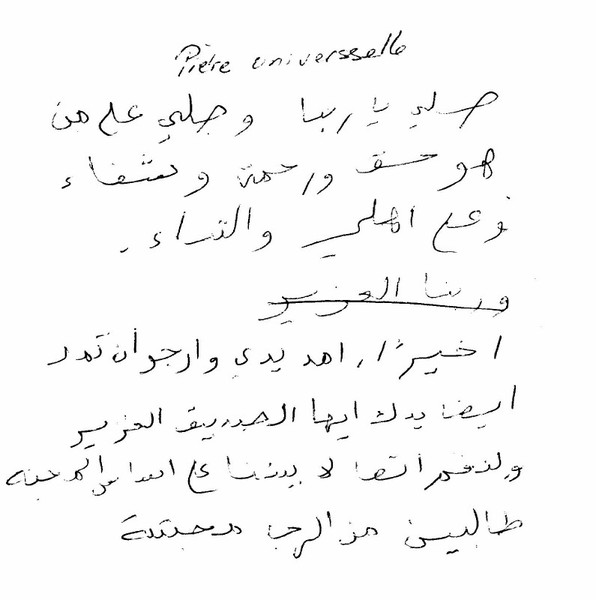 Prière universselle
صلي يا ربنا وصلي على من
هو حق ورحمة وشفاء
وعلى اهلي والقراء.
وربنا العزيز
اخيرًا، امد يدي وارجو أن تمد
ايضا يدك ايها الصديق العزيز
ولنضم اتحادنا على اساس المحبة
طالبين من الرب محبته